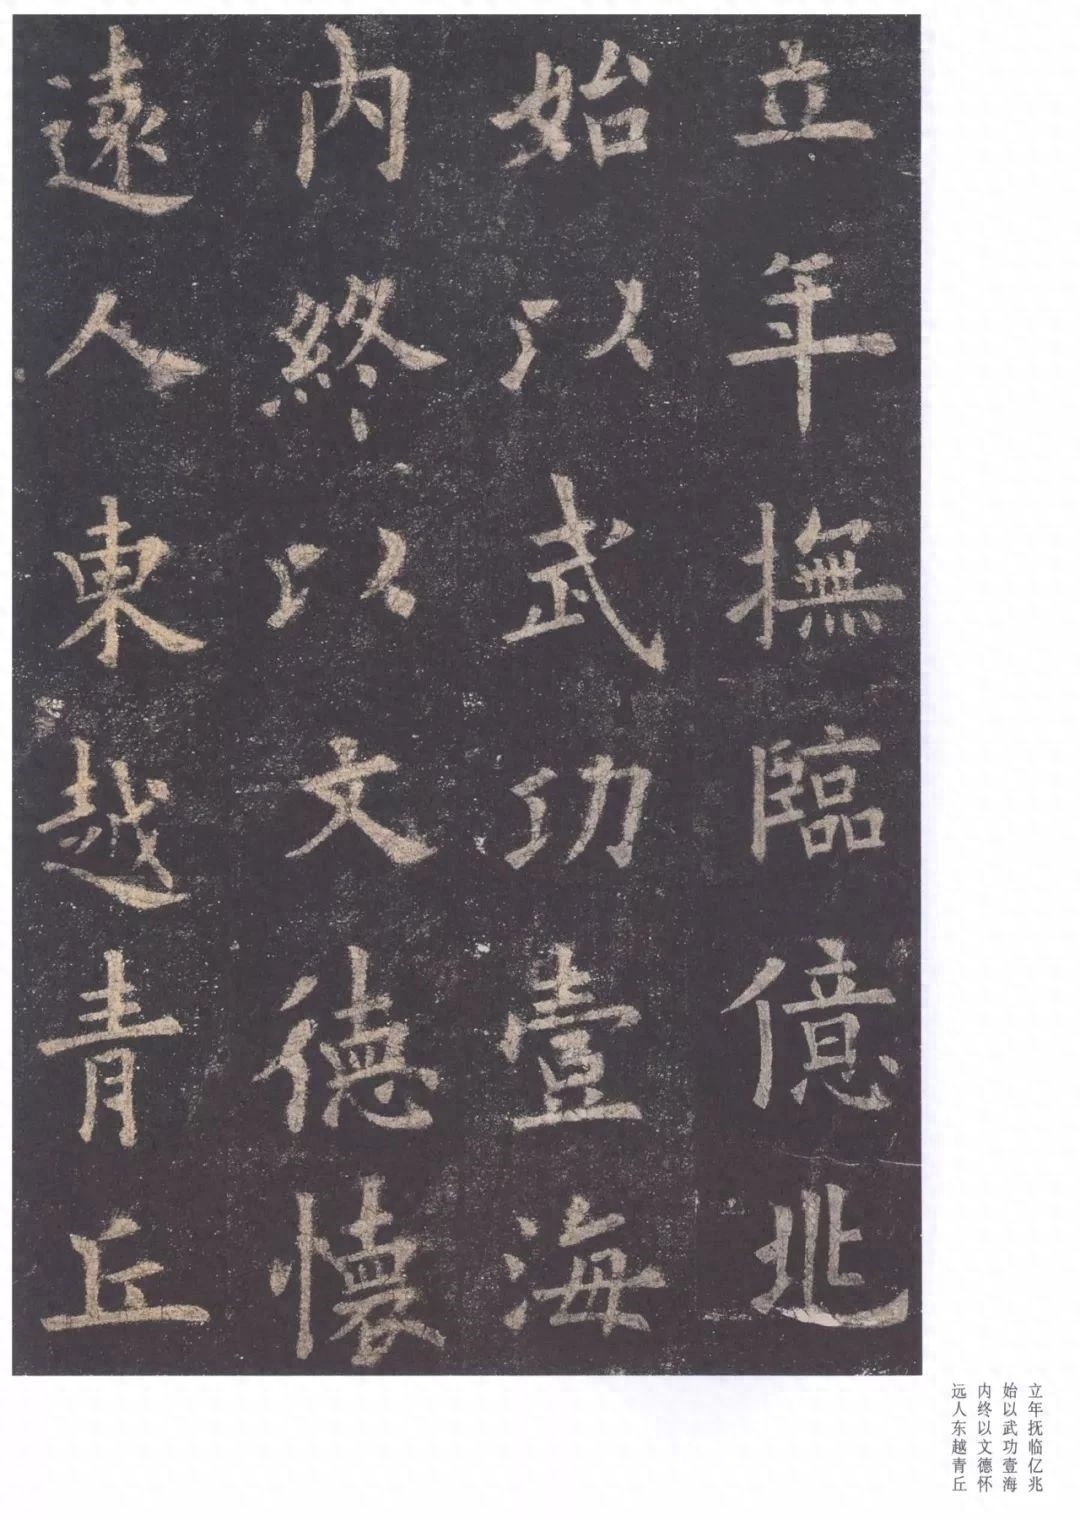 立年撫臨億兆
始以武功壹海
内終以文德懷
遠人東越青丘
立年抚临亿兆
始以武功壹海
内终以文德怀
远人东越青丘